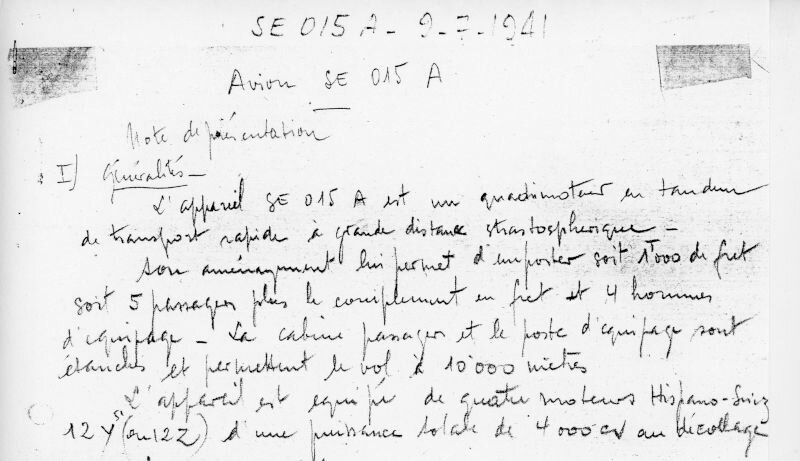 SE 015 A - 9-7-1941
Avion SE 015 A
Note de présentation
I) Généralités -
L'appareil SE 015 A est un quadrimoteur en tandem
de transport rapide à grande distance strastosphérique -
Son aménagement lui permet d'emporter soit 1T000 de fret
soit 5 passagers plus le complement en fret et 4 hommes
d'equipage - La cabine passagers et le poste d'equipage sont
étanches et permettent le vol à 10'000 mètres
L'appareil est equipé de quatre moteurs Hispano-Suiza
12 Y (ou 12 Z) d'une puissance totale de 4 000 cv au décollage